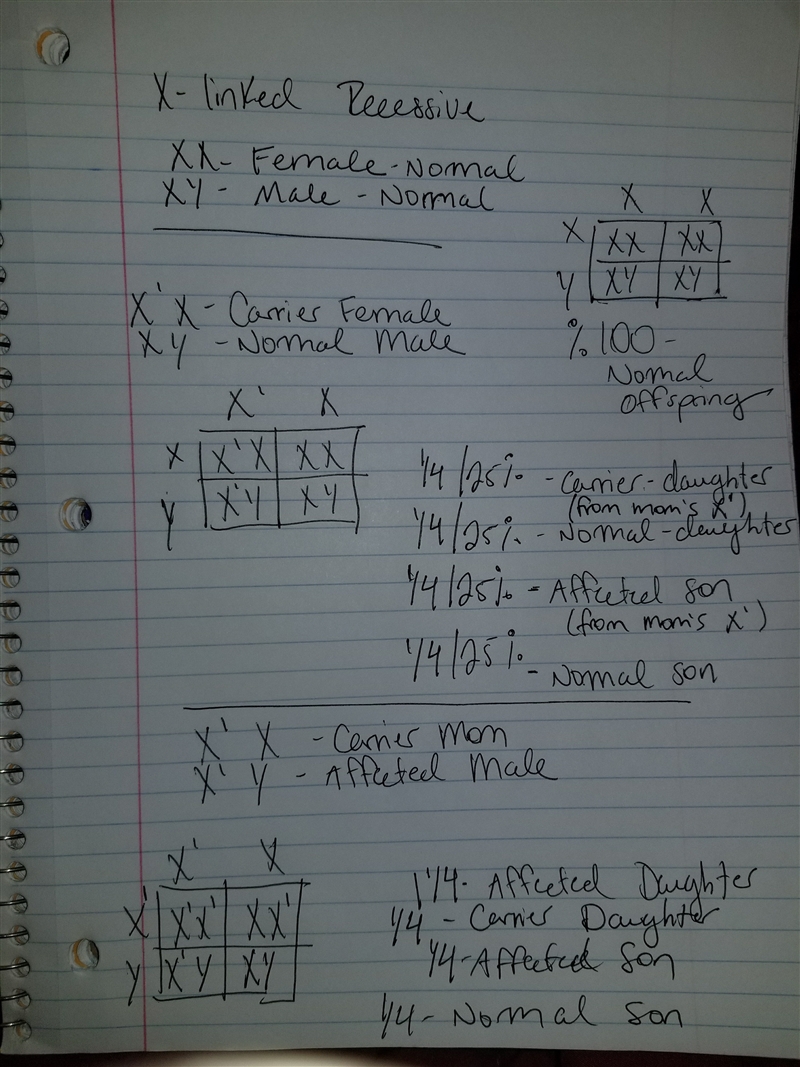 X-linked Recessive
XX- Female-Normal
XY - Male - Normal
X X
X XX XX
Y XY XY
% 100 -
Normal
Offspring
X' X - Carrier Female
X Y - Normal Male
X' X
X X'X XX
Y X'Y XY
1/4 /25% - Carrier-daughter
(from mom's X')
1/4 /25% - Normal-daughter
1/4 /25% - Affected Son
(from mom's X')
1/4 /25% - Normal son
X' X - Carrier Mom
X' Y - Affected Male
X' X
X' X'X' XX'
Y X'Y XY
1/4 - Affected Daughter
1/4 - Carrier Daughter
1/4 - Affected Son
1/4 - Normal Son